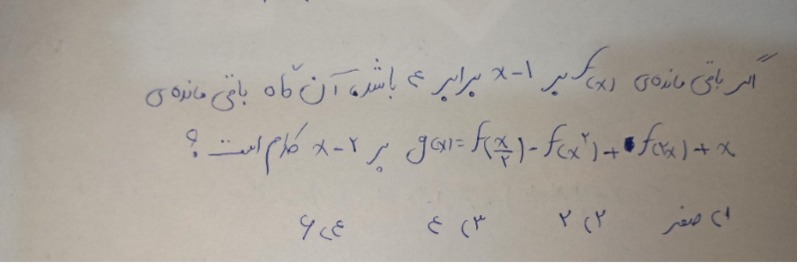 اگر باقی مانده‌ی f(x) بر x-1 برابر ۴ باشد، آن گاه باقی مانده‌ی
g(x) = f(x/۲) - f(x^۲) + f(۲x) + x بر x-۲ کدام است؟
۱) صفر ۲) ۲ ۳) ۴ ۴) ۶